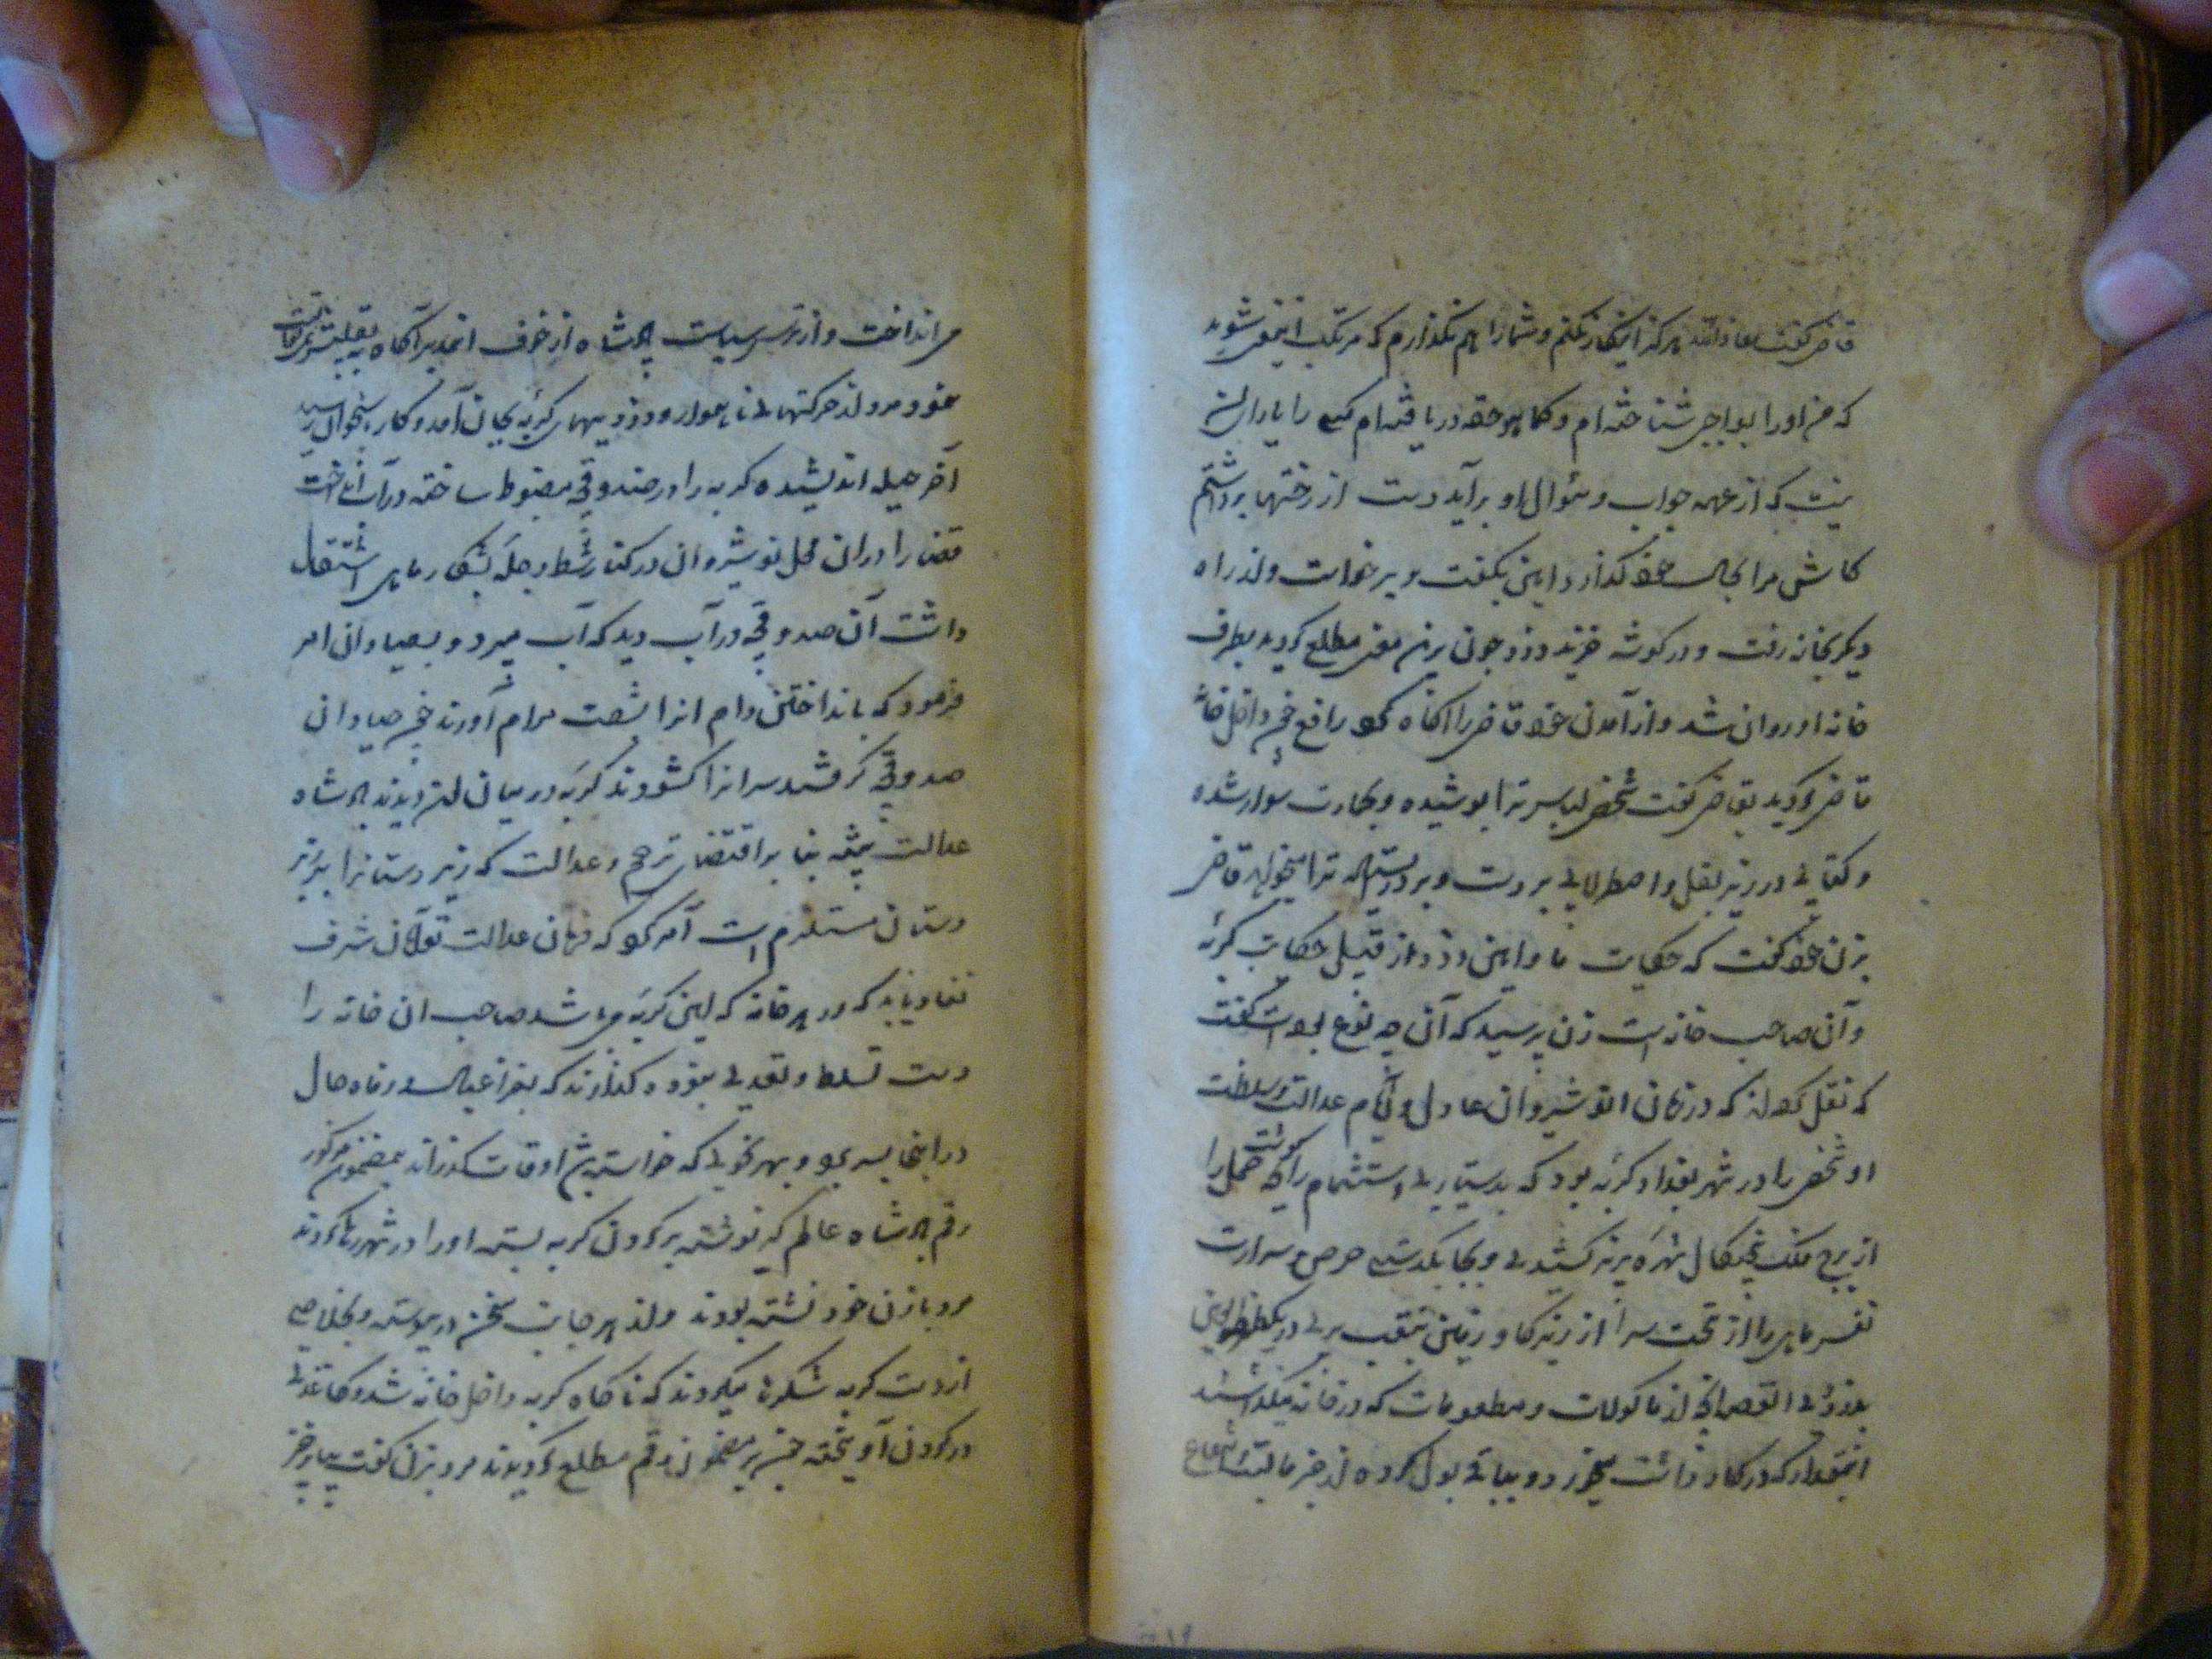 قاضی گفت معاذ الله هرگز اینکار نکنم و شما را هم نگذارم که مرتکب اینمعنی شوید
که من او را بواجبی شناخته ام و کما هو حقه دریافته ام کسی را یارای آن
نیست که از عهده جواب و سئوال او برآید دست از رختها برداشتم
کاش مرا بحال خود گذارد این بگفت و برخواست و از راه
دیگر بخانه رفت و در گوشه خزید دزد چون برین معنی مطلع گردید بطرف
خانه او روان شد و از آمدن خود قاضی را آگاه کرد داخل خانهٔ
قاضی گردید بقاضی گفت شخصی لباس ترا پوشیده و بحمارت سوار شده
و کتابی در زیر بغل و اصطرلابی بر دست و بر در ایستاده ترا میخواهد قاضی
بزن خود گفت که حکایت ما و این دزد از قبیل حکایت گربه
و آن صاحب خانه است زن پرسید که آن چه نوع بوده است گفت
که نقل کرده اند که در زمان انوشیروان عادل و هنگام عدالت و سلطنت
او شخصی را در شهر بغداد گربه بود که بدستیاری استشمام رایحه گوشت حمل را
از برج فلک بچنگال شره بزیر کشیدی و بجای یکدستی حرص و شرارت
نفس ماهی را از تحت سرا از زیر گاو زمین بنقب بر
بدزدی القصه آنچه از ماکولات و مطعومات که در خانه میگذاشتند
آنمقدار که در کار داشت میخورد و بباقی بول کرده از خیر
می انداخت و از ترس سیاست پادشاه از خوف
نمود مرد از حرکتهای ناهموار و دزدیهای گربه بجان آمد و کار باستخوان رسید
آخر حیله اندیشیده گربه را در صندوقچه مضبوط ساخته در آب انداخت
قضا را در آن محل نوشیروان در کنار شط دجله بشکار ماهی اشتغال
داشت آن صندوقچه در آب دید که آب میبرد و بصیادان امر
فرمود که بانداختن دام آنرا بشصت مرام آورند صیادان
صندوقچه گرفتند سر آنرا گشودند گربه در میان آن دیدند پادشاه
عدالت پیشه بنا بر اقتضای ترحم و عدالت که زیر دستانرا بر زبر
دستان مستلزم است امر کرد که فرمان عدالت توأمان شرف
نفاد یابد که در هر خانه که این گربه می باشد صاحب آن خانه را
دست تسلط و تعدی نبوده گذارند که بفراغبال و رفاه حال
در اینجا بسر برد و بهر نحوی که خواسته باشد اوقات گذراند بمضمون مذکور
رقم پادشاه عالم گیر نوشته بر گردن گربه بسته او را در شهر رها کردند
مرد با زن خود نشسته بودند و از هر جانب سخن در پیوسته و بخلاصی
از دست گربه شکرها میکردند که ناگاه گربه داخل خانه شد و کاغذی
در گردن آویخته چون بر مضمون رقم مطلع گردیدند مرد بزن گفت بیا برخیز